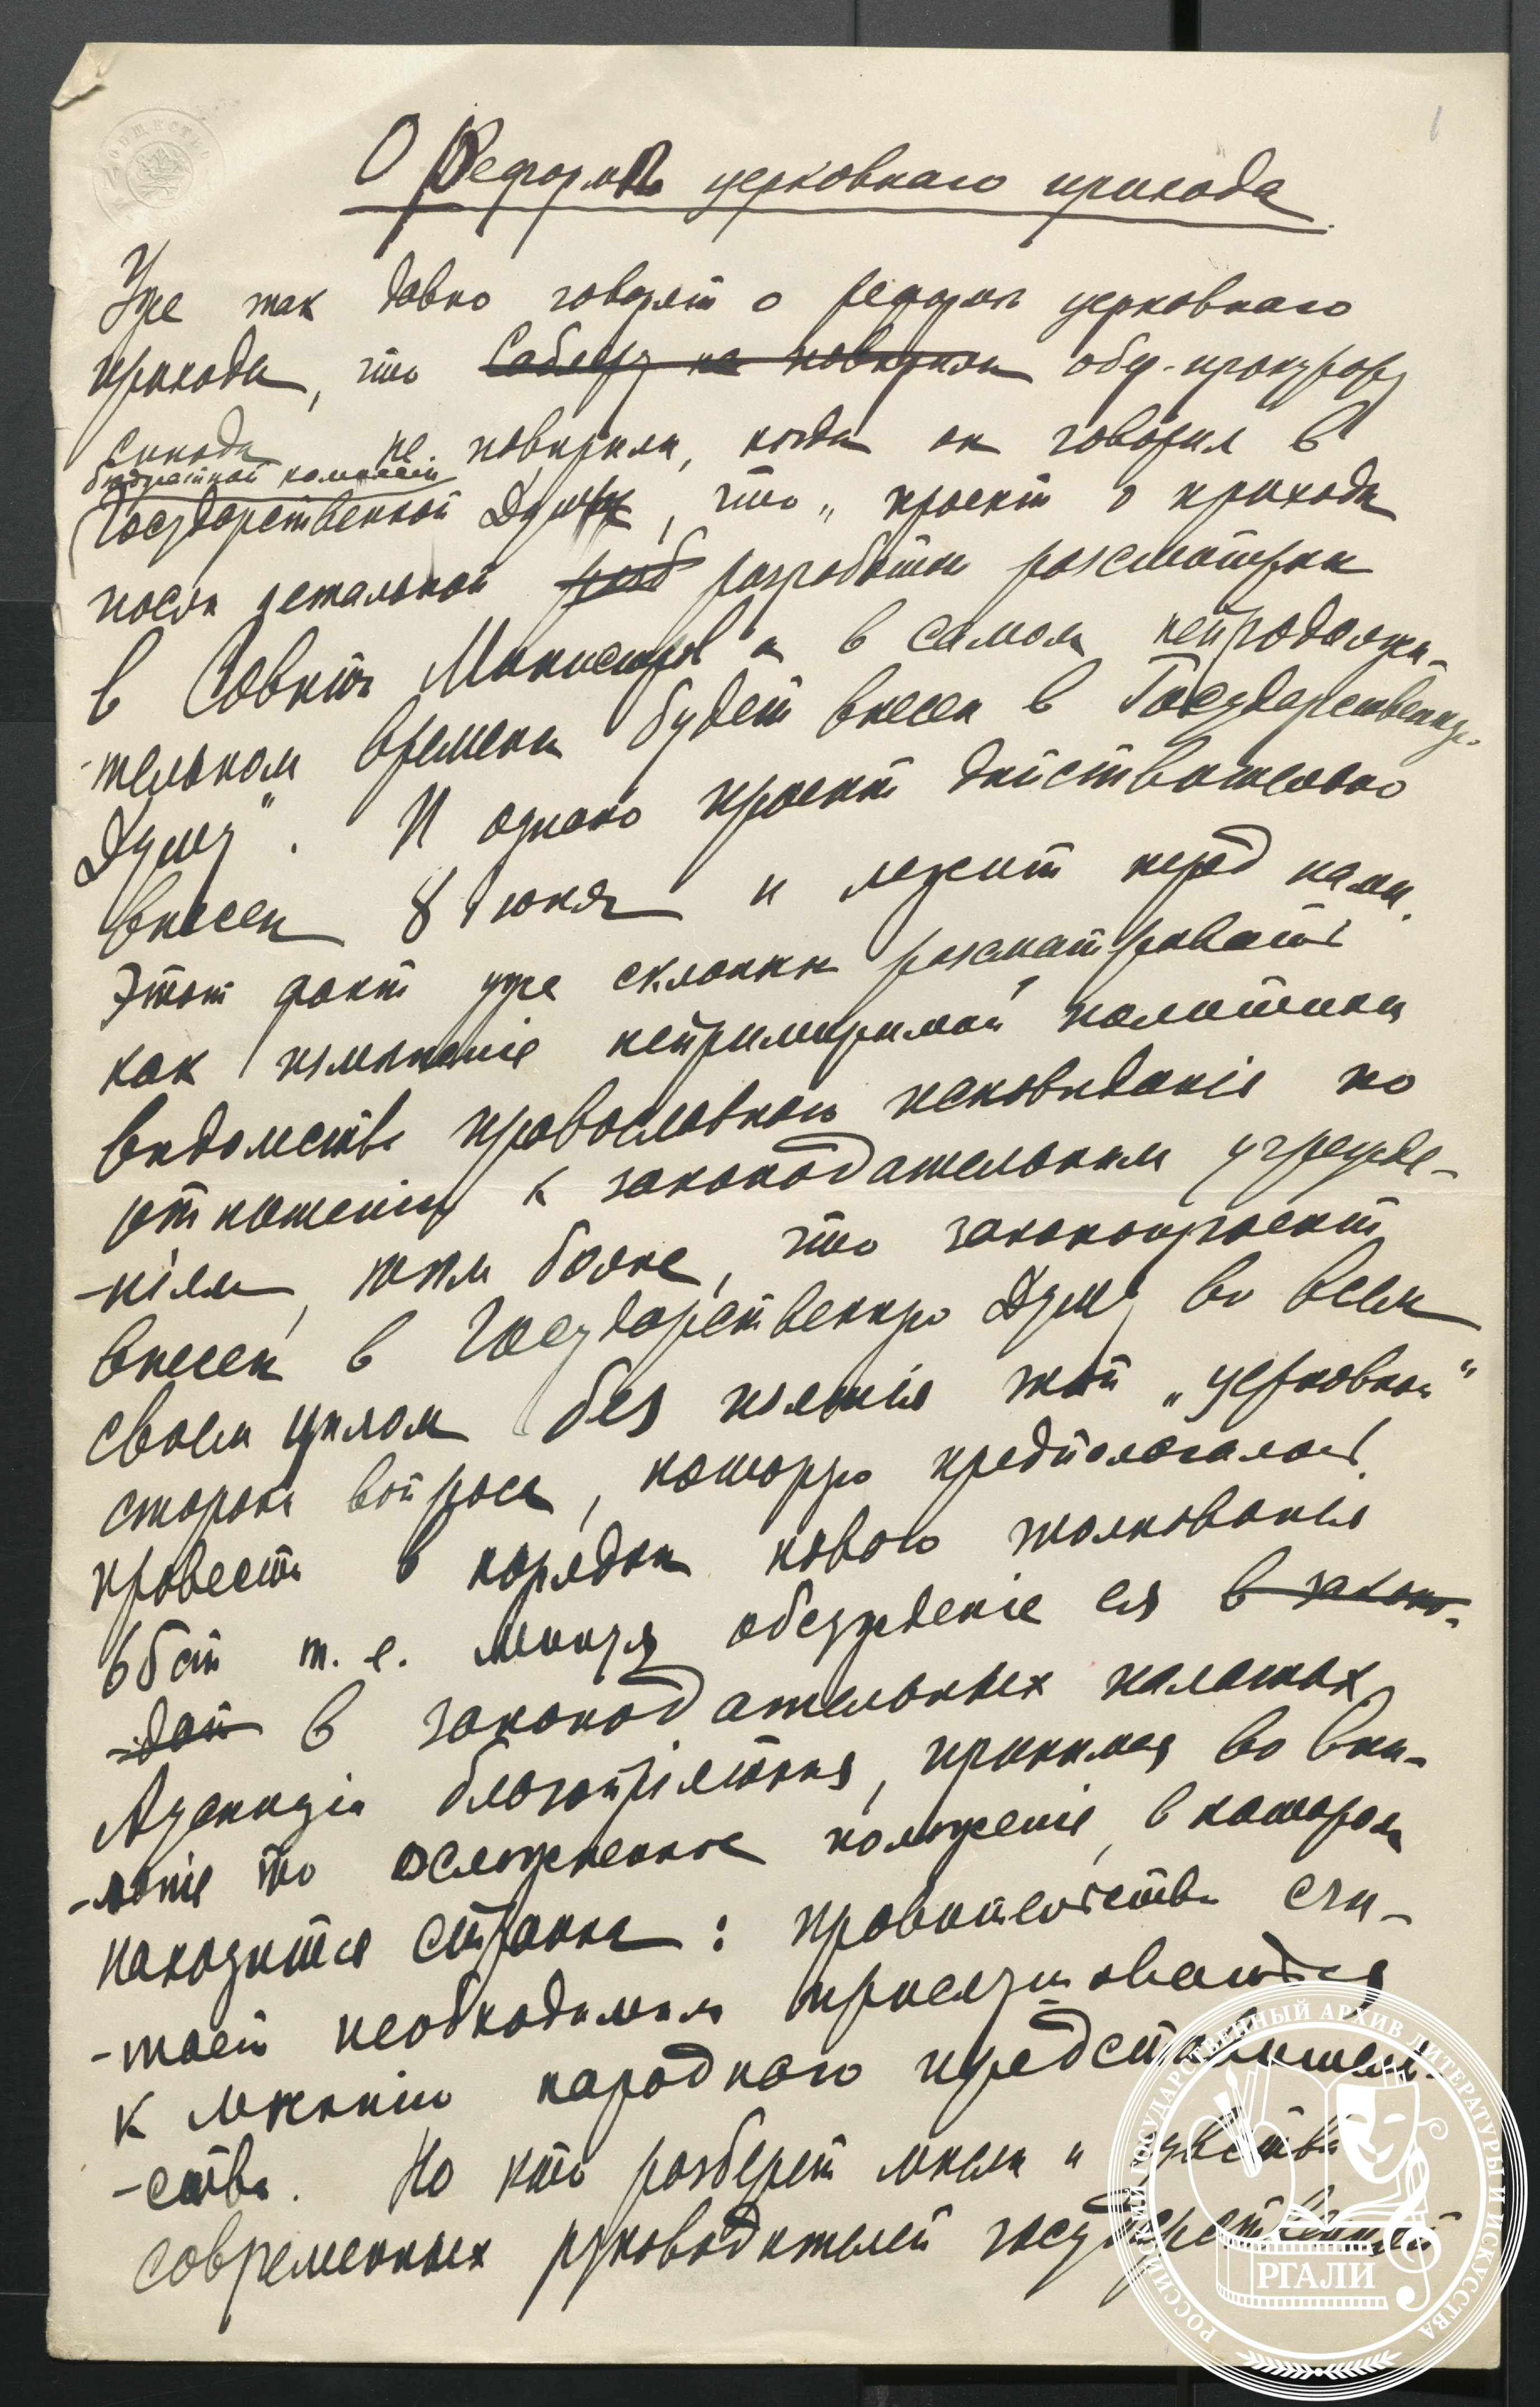 1
О Реформѣ церковнаго прихода
Уже так давно говорят о реформѣ церковнаго
прихода, что Саблеру не повѣрили обер-прокурору
Синода не повѣрили, когда он говорил в
бюджетной комиссіи
Государственной Думы, что „проект о приходѣ
послѣ детальной раб разработки разсмотрен
в Совѣтѣ Министров и в самом непродолжи-
-тельном времени будет внесен в Государственную
Думу“. И однако проект действительно
внесен 8 Іюня и лежит перед нами.
Этот факт уже склонны разсматривать
как измѣненіе непримиримой политики
вѣдомства православнаго исповѣданія по
отношенію к законодательным учрежде-
-ніям, тѣм более, что законопроект
внесен в Государственную Думу во всем
своем цѣлом без изъятія той „церковной“
стороны вопроса, которую предполагалось
провести в порядкѣ новаго толкованія
т. е. минуя обсужденіе ея в законо-
-дат в законодательных палатах
благопріятная, принимая во вни-
-маніе то осложненное положеніе, в котором
находится страна: правительство счи-
-тает необходимым прислушиваться
к мнѣнію народнаго представитель-
-ства. Но кто разберет мысли и чувства
современных руководителей государственной
РОССИЙСКИЙ ГОСУДАРСТВЕННЫЙ АРХИВ ЛИТЕРАТУРЫ И ИСКУССТВА
РГАЛИ